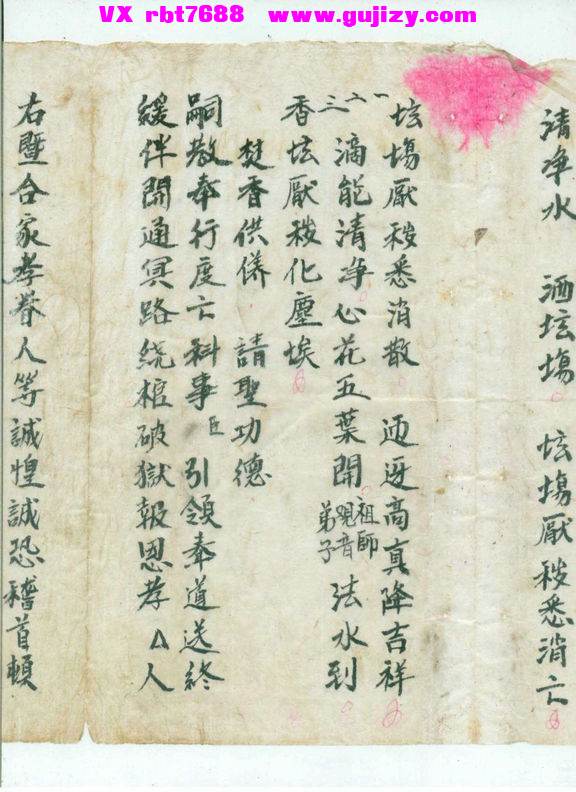 VX rbt7688 www.gujizy.com
清净水 洒坛塲 坛塲厭秽悉消亡
坛塲厭秽悉消散 迎迓高真降吉祥
一二三滴能清净心花五葉開 祖師 观音 弟子 法水到
香坛厭秽化塵埃
焚香供儀 請聖功德
嗣教奉行度亡科事臣 引領奉道送終
緩伴開通冥路绕棺破獄報恩孝厶人
右暨合家孝眷人等誠惶誠恐稽首頓